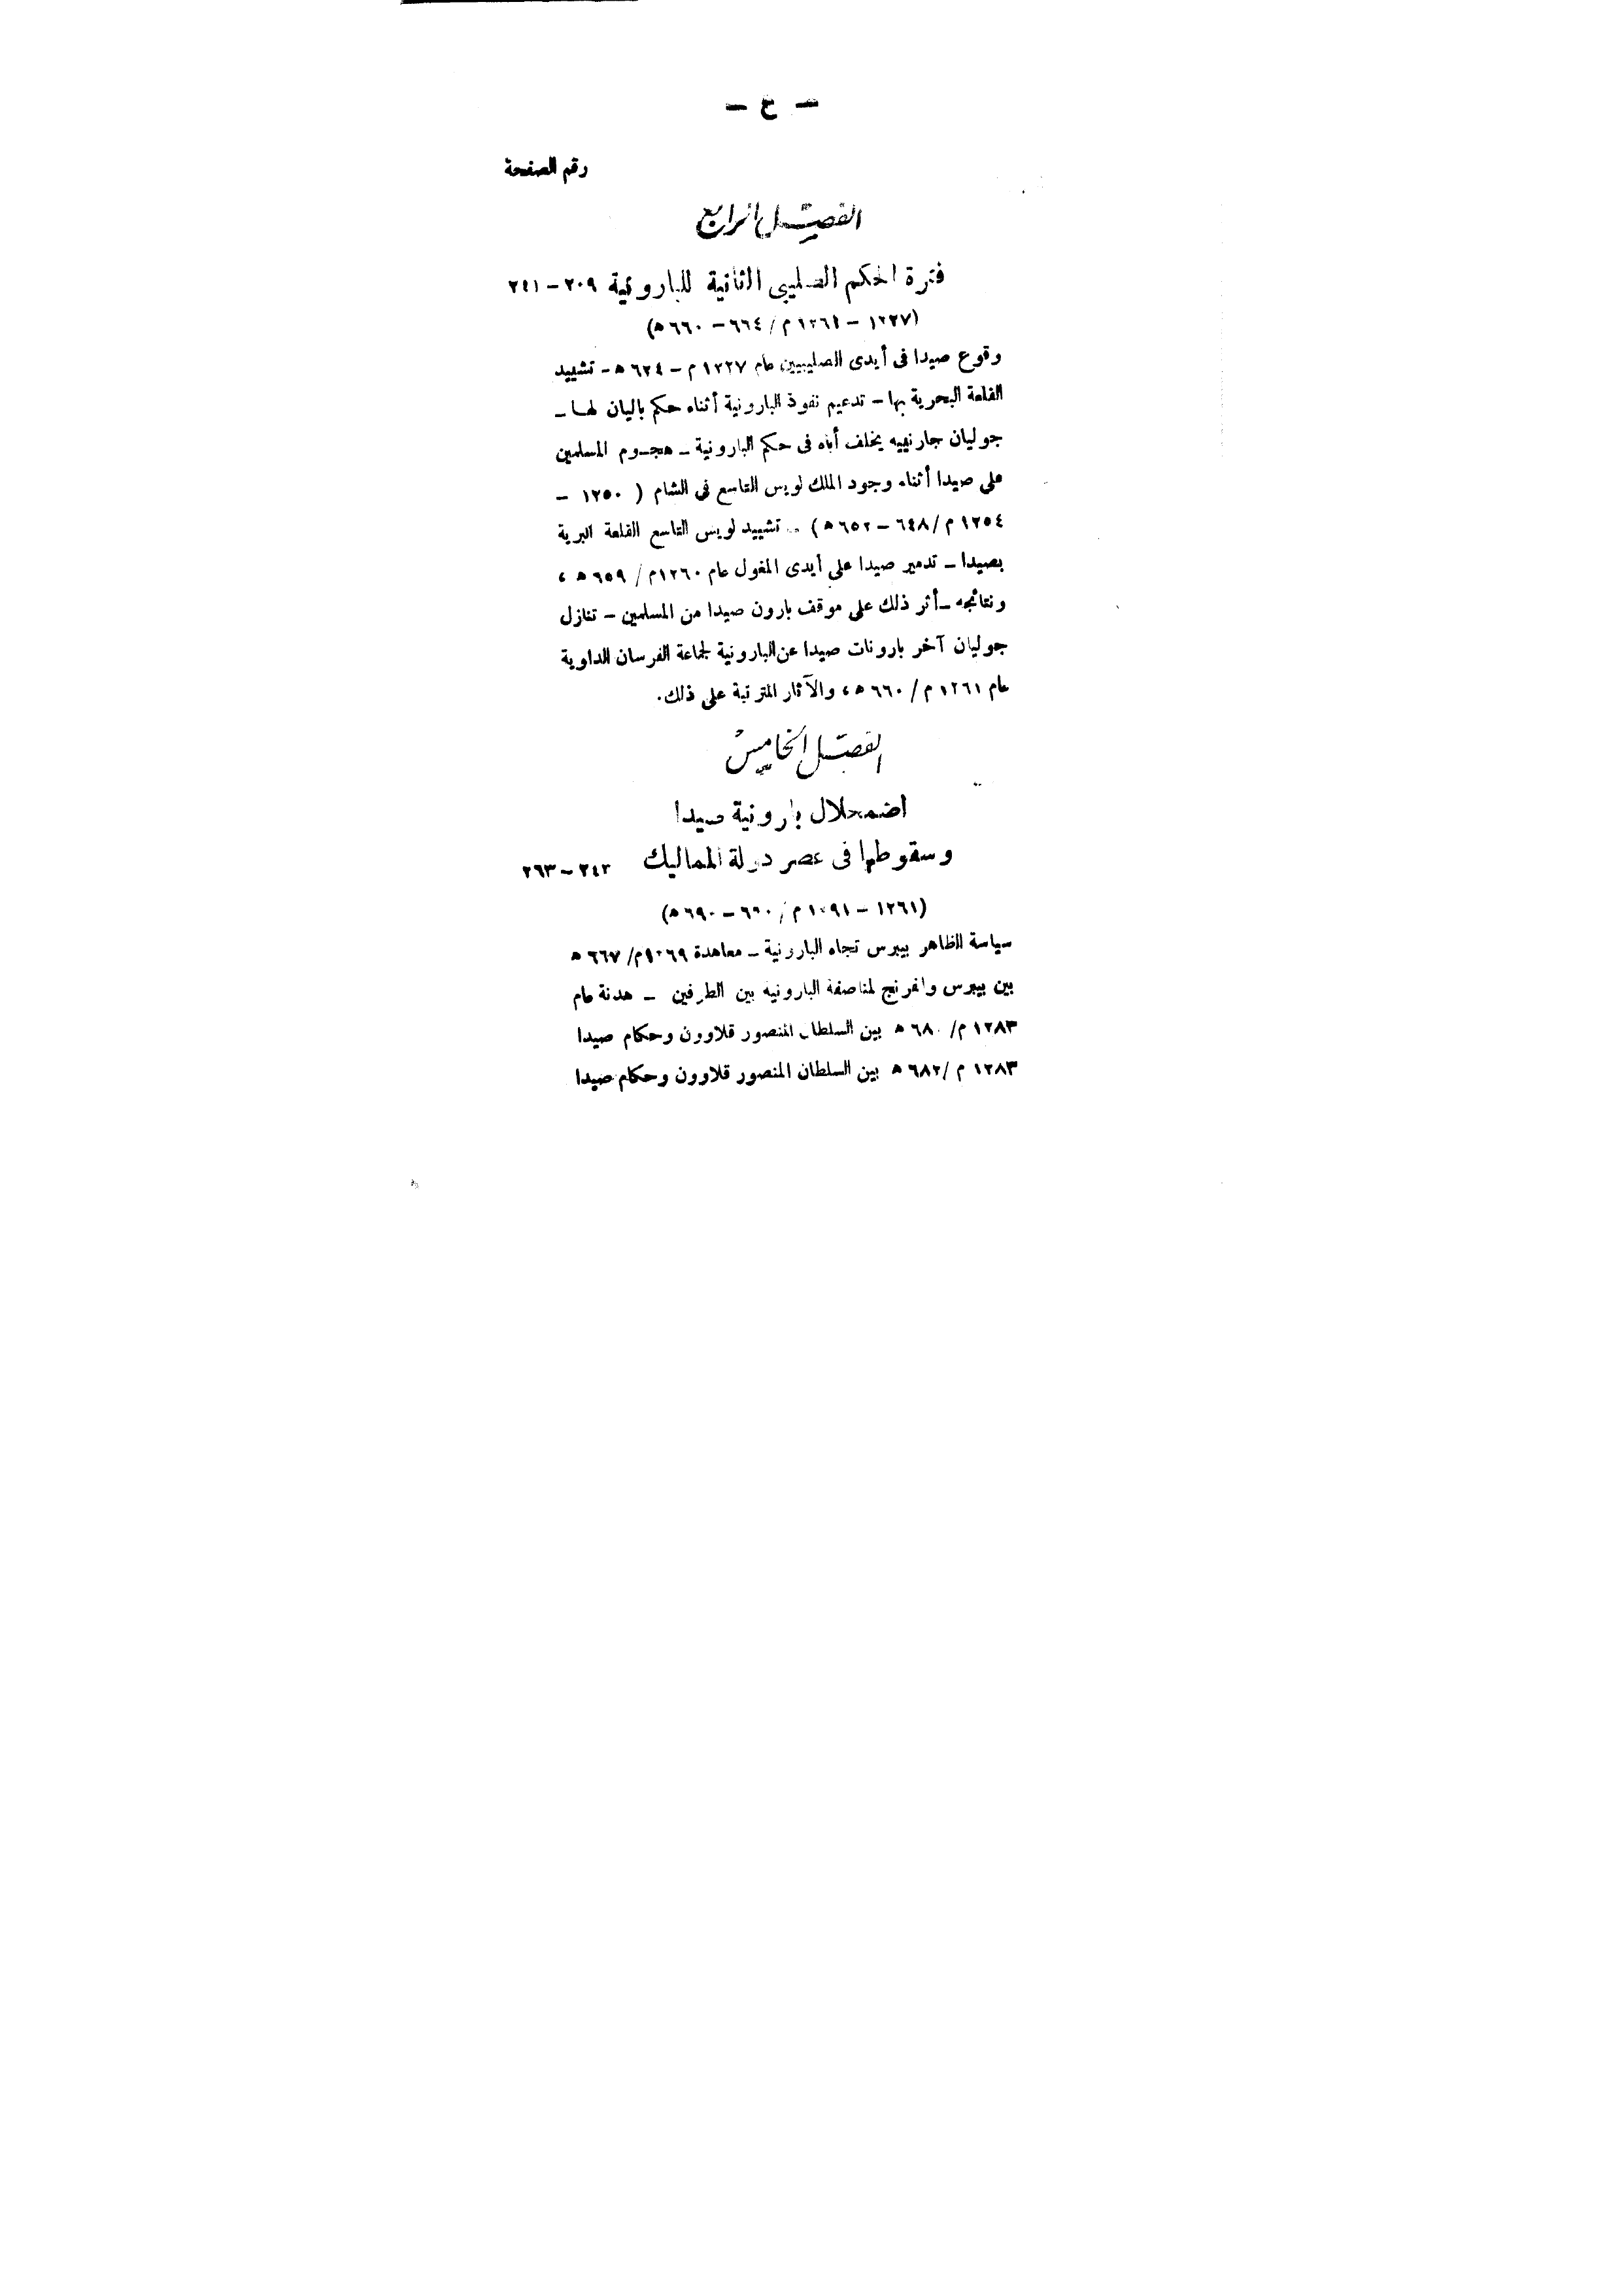 — ع —
رقم الصفحة
الفصل الرابع
فترة الحكم الصليبى الثانية للبارونية ٢٠٩ – ٢٤١
(١٢٢٧ – ١٢٦١ م / ٦٦٤ – ٦٦٠ ه)
وقوع صيدا فى أيدى الصليبيين عام ١٢٢٧ م – ٦٢٤ ه – تشييد
القلعة البحرية بها – تدعيم نفوذ البارونية أثناء حكم باليان لهـا –
جوليان جارنييه يخلف أباه فى حكم البارونية – هجـوم المسلمين
على صيدا أثناء وجود الملك لويس التاسع فى الشام ( ١٢٥٠ –
١٢٥٤ م / ٦٤٨ – ٦٥٢ ه ) – تشييد لويس التاسع القلعة البرية
بصيدا – تدمير صيدا على أيدى المغول عام ١٢٦٠ م / ٦٥٩ ه ،
ونتائجه – أثر ذلك على موقف بارون صيدا من المسلمين – تنازل
جوليان آخر بارونات صيدا عن البارونية لجماعة الفرسان الداوية
عام ١٢٦١ م / ٦٦٠ ه ، والآثار المترتبة على ذلك .
الفصل الخامس
اضمحلال بارونية صيدا
وسقوطها فى عصر دولة المماليك ٢٤٣ – ٢٦٣
(١٢٦١ – ١٢٩١ م / ٦٦٠ – ٦٩٠ ه)
سياسة الظاهر بيبرس تجاه البارونية – معاهدة ١٢٦٩ م / ٦٦٧ ه
بين بيبرس والفرنج لمناصفة البارونية بين الطرفين – هدنة عام
١٢٨٣ م / ٦٨٠ ه بين السلطان المنصور قلاوون وحكام صيدا
١٢٨٣ م / ٦٨٢ ه بين السلطان المنصور قلاوون وحكام صيدا